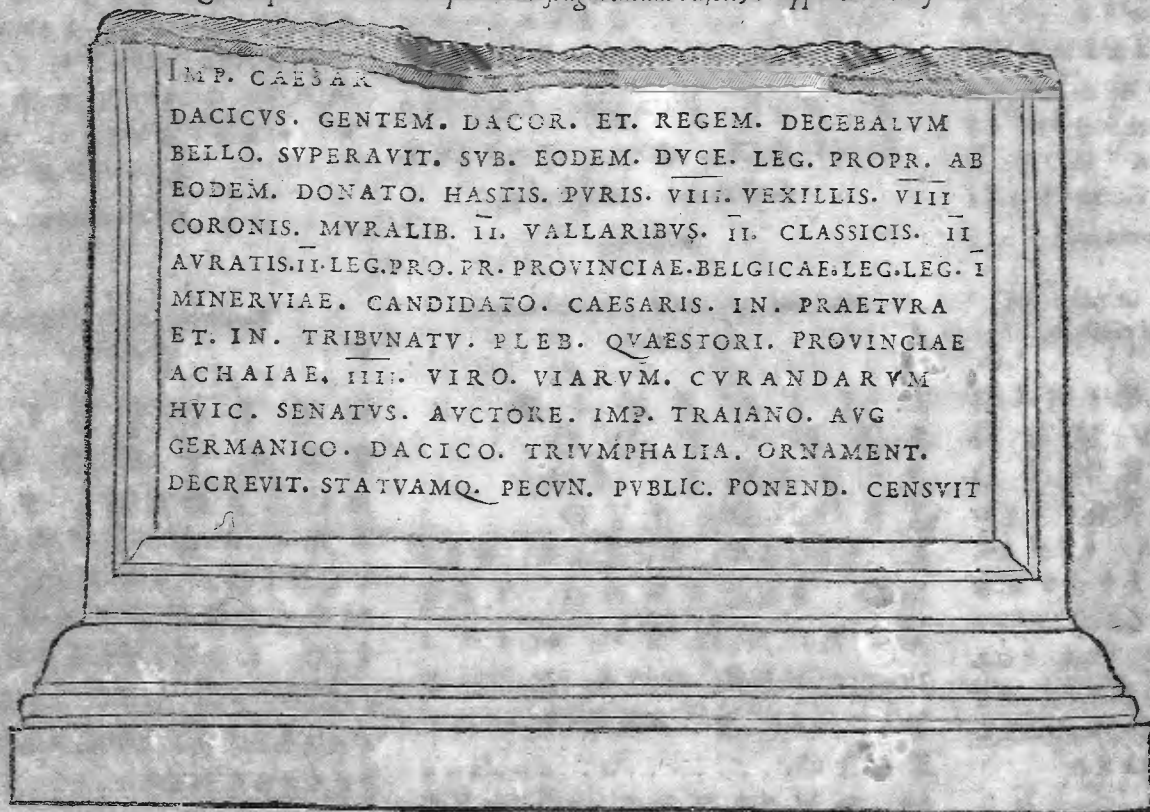 IMP. CAESAR
DACICVS. GENTEM. DACOR. ET. REGEM. DECEBALVM
BELLO. SVPERAVIT. SVB. EODEM. DVCE. LEG. PROPR. AB
EODEM. DONATO. HASTIS. PVRIS. VIII. VEXILLIS. VIII
CORONIS. MVRALIB. II. VALLARIBVS. II. CLASSICIS. II
AVRATIS. II. LEG. PRO. PR. PROVINCIAE. BELGICAE. LEG. LEG. I
MINERVIAE. CANDIDATO. CAESARIS. IN. PRAETVRA
ET. IN. TRIBVNATV. PLEB. QVAESTORI. PROVINCIAE
ACHAIAE. IIII. VIRO. VIARVM. CVRANDARVM
HVIC. SENATVS. AVCTORE. IMP. TRAIANO. AVG
GERMANICO. DACICO. TRIVMPHALIA. ORNAMENT.
DECREVIT. STATVAMQ. PECVN. PVBLIC. PONEND. CENSVIT